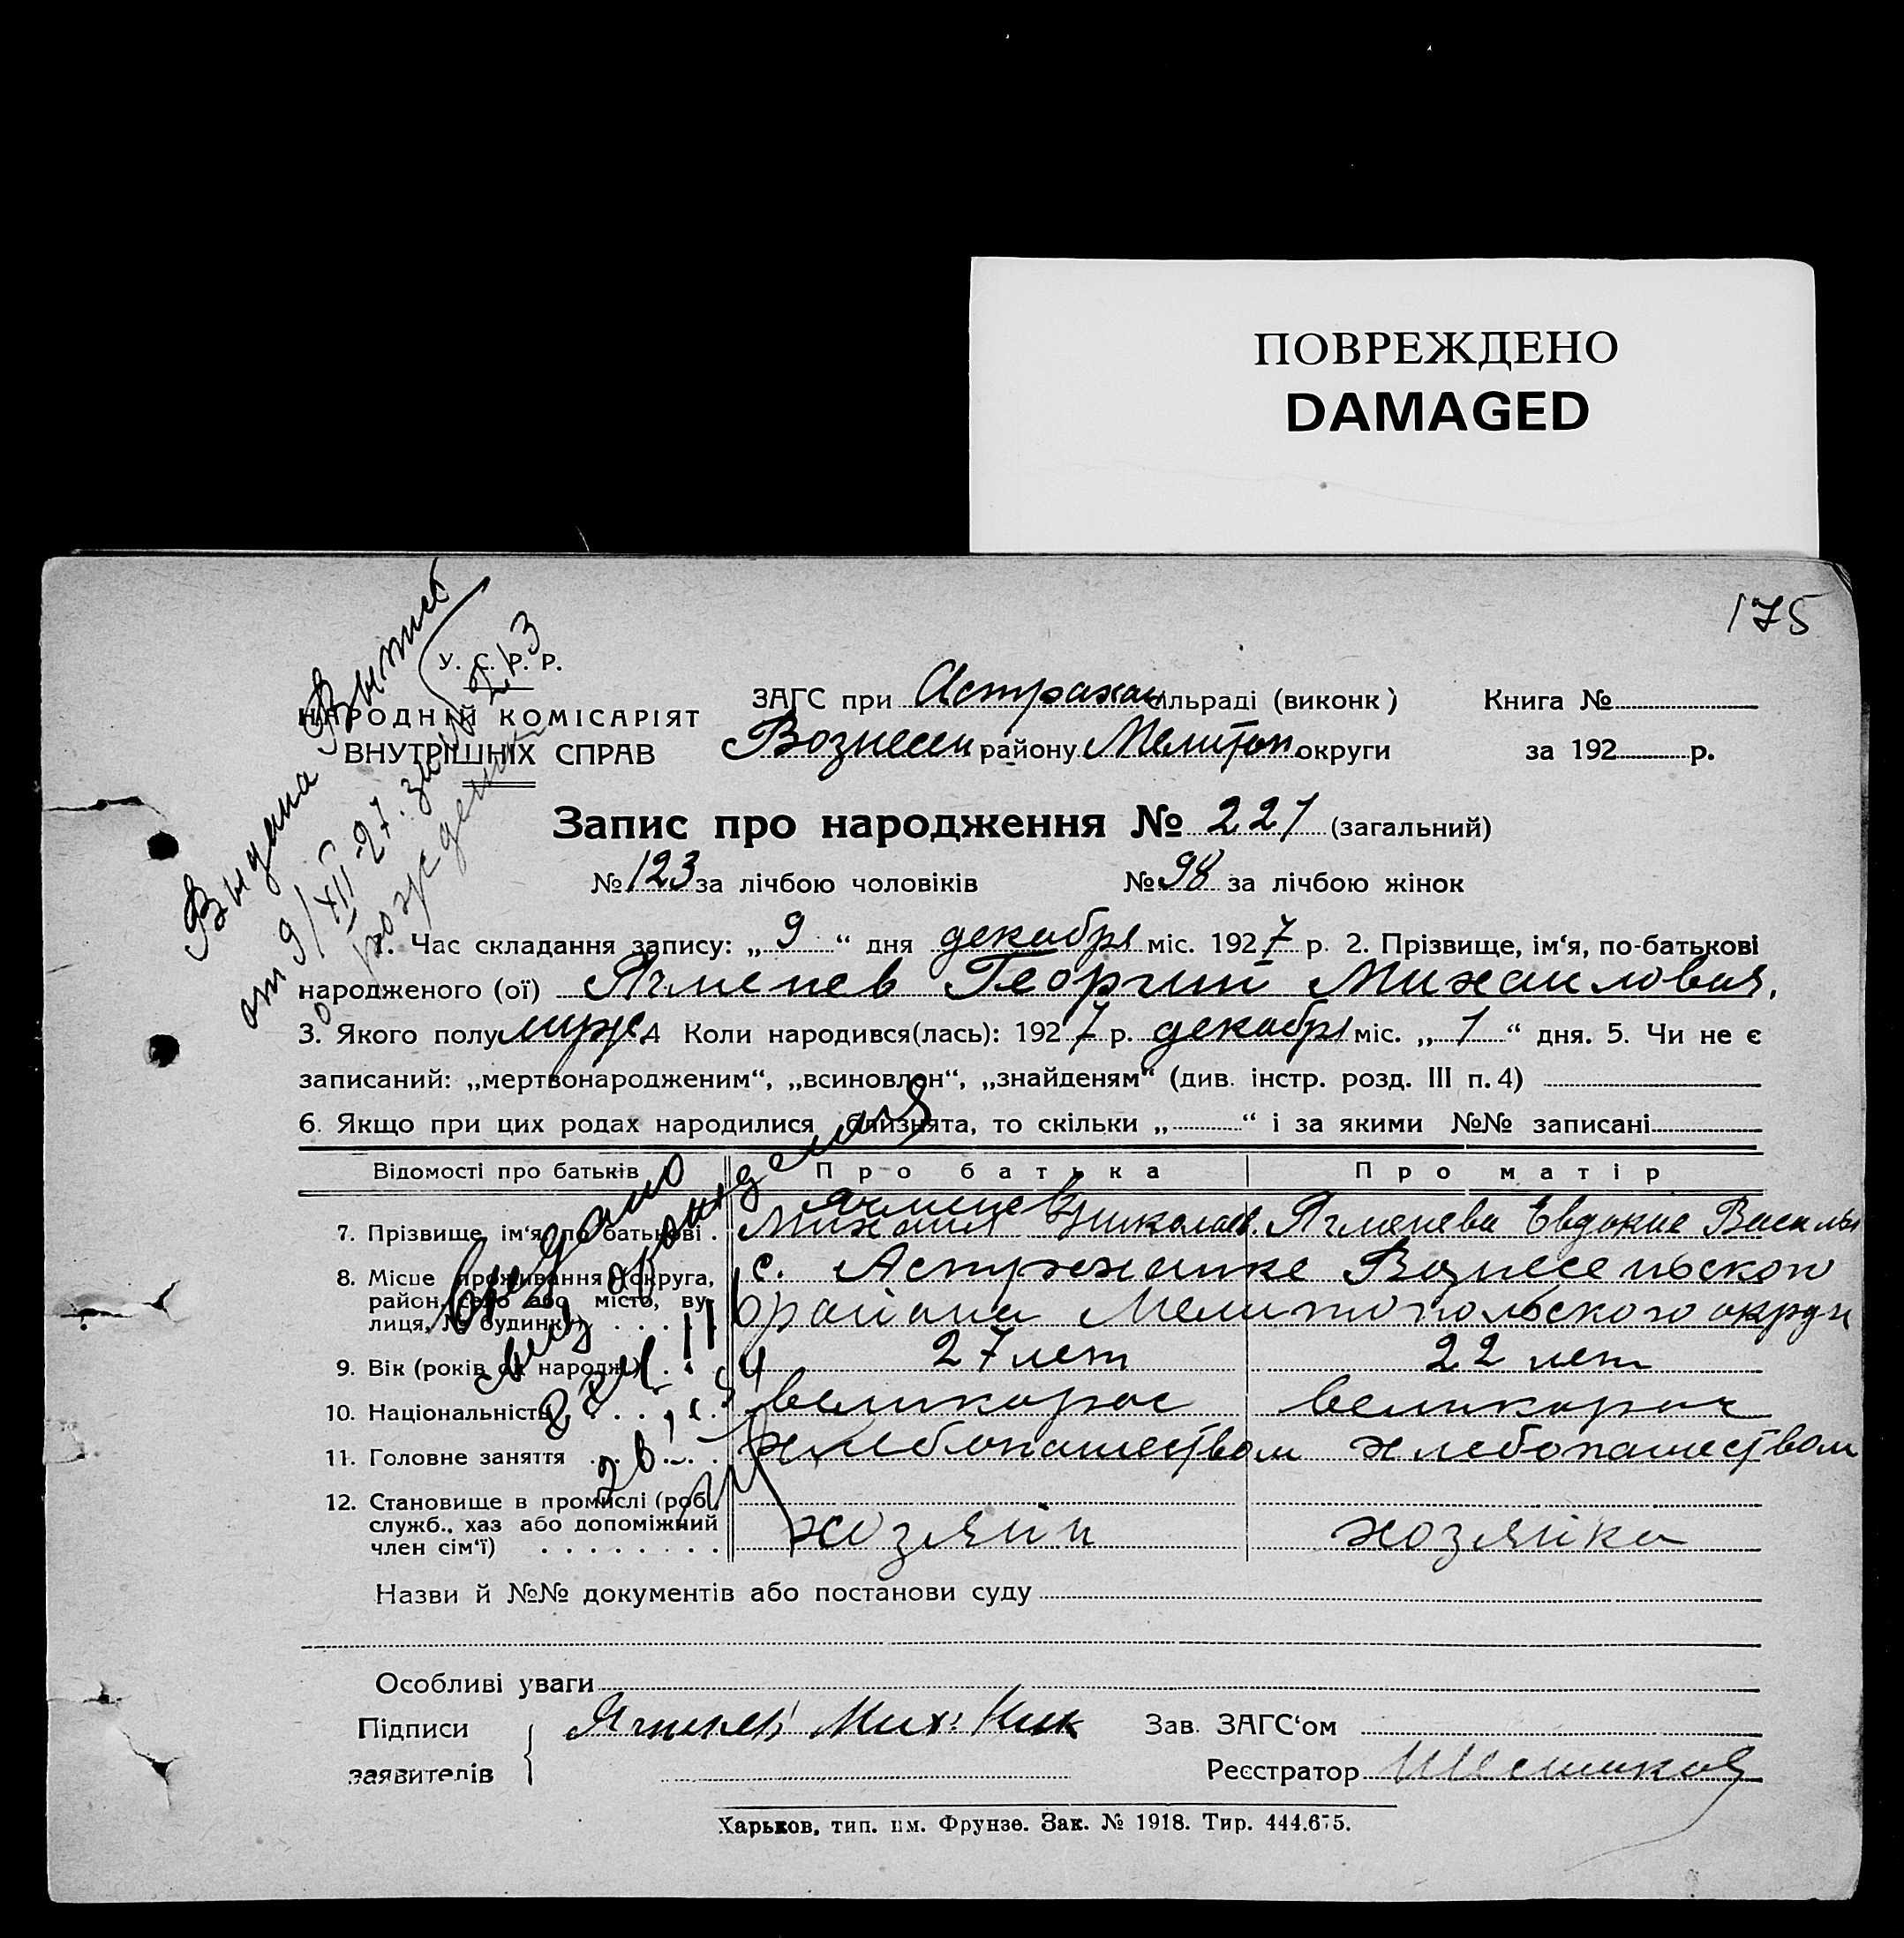 ПОВРЕЖДЕНО
DAMAGED
175
Выдана Выпись
от 9/XII-27. за №
о рождении
У. С. Р. Р.
НАРОДНІЙ КОМІСАРІЯТ
ВНУТРІШНІХ СПРАВ
ЗАГС при Астрахан сільраді (виконк) Книга №
Вознесен району Мелитоп. округи за 192 р.
Запис про народження № 221 (загальний)
№ 123 за лічбою чоловіків № 98 за лічбою жінок
1. Час складання запису: „ 9 “ дня декабря міс. 1927 р. 2. Прізвище, ім‘я, по-батькові
народженого (ої) Ячменев Георгий Михаилович.
3. Якого полу муж. 4 Коли народився(лась): 1927 р. декабря міс. „ 1 “ дня. 5. Чи не є
записаний: „мертвонародженим“, „всиновлен“, „знайденям“ (див. інстр. розд. III п. 4)
6. Якщо при цих родах народилися близнята, то скільки „ “ і за якими №№ записані
Відомості про батьків Про батька Про матір
Ячменев
7. Прізвище, ім‘я, по батькові . Михаил Николаев. Ячменева Евдокие Василь
8. Місце проживання (округа, с. Астраханке Вознесеньского
район, село або місто, ву-
лиця, № будинку) . . . . района Мелитопольского округи
9. Вік (років од народж.) . . 27 лет 22 лет
10. Національність . . . . великорос великорос
11. Головне заняття . . . . хлебопашеством хлебопашеством
12. Становище в промислі (роб.,
служб., хаз або допоміжний
член сім‘ї) . . . . . . . . хозяин хозяйка
Выдано
Назви й №№ документів або постанови суду
Особливі уваги
Підписи Ячменев Мих. Ник Зав. ЗАГС‘ом
заявителів Реєстратор
Харьков, тип. им. Фрунзе. Зак. № 1918. Тир. 444.675.